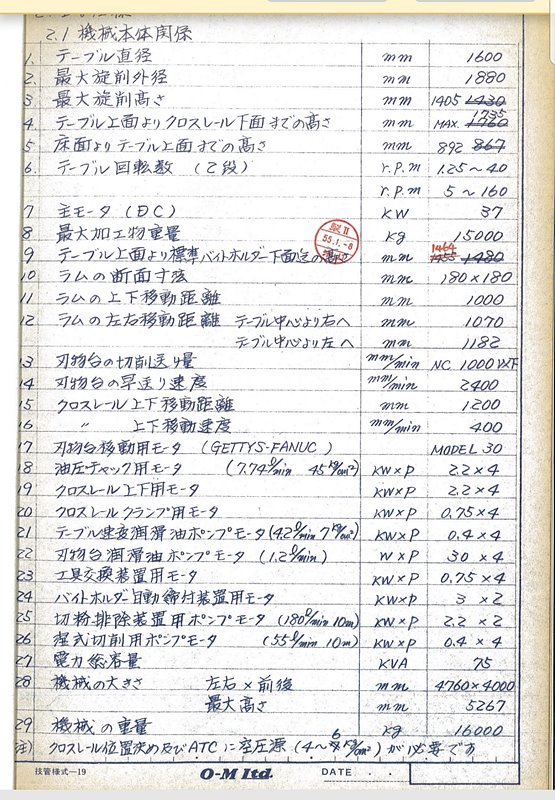 2.1 機械本体関係
1. テーブル直径 mm 1600
2. 最大旋削外径 mm 1880
3 最大旋削高さ mm 1405 1430
4 テーブル上面よりクロスレール下面までの高さ mm MAX. 1735 1760
5 床面よりテーブル上面までの高さ mm 892 867
6. テーブル回転数 (2段) r.p.m 1.25~40
r.p.m 5~160
7 主モータ (DC) KW 37
8 最大加工物重量 Kg 15000
9 テーブル上面より標準バイトホルダー下面迄の mm 1464 1455 1480
10 ラムの断面寸法 mm 180×180
11 ラムの上下移動距離 mm 1000
12 ラムの左右移動距離 テーブル中心より右へ mm 1070
テーブル中心より左へ mm 1182
13 刃物台の切削送り量 mm/min NC 1000以下
14 刃物台の早送り速度 mm/min 2400
15 クロスレール上下移動距離 mm 1200
16 〃 上下移動速度 mm/min 400
17 刃物台移動用モータ (GETTYS-FANUC) MODEL 30
18 油圧チャック用モータ (7.74ℓ/min 45kg/cm²) KW×P 2.2×4
19 クロスレール上下用モータ KW×P 2.2×4
20 クロスレールクランプ用モータ KW×P 0.75×4
21 テーブル速変潤滑油ポンプモータ(42ℓ/min 7kg/cm²) KW×P 0.4×4
22 刃物台潤滑油ポンプモータ (1.2ℓ/min) W×P 30×4
23 工具交換装置用モータ KW×P 0.75×4
24 バイトホルダー自動締付装置用モータ KW×P 3×2
25 切粉排除装置用ポンプモータ (180ℓ/min 10m) KW×P 2.2×2
26 湿式切削用ポンプモータ (55ℓ/min 10m) KW×P 0.4×4
27 電力総容量 KVA 75
28 機械の大きさ 左右×前後 mm 4760×4000
最大高さ mm 5267
29 機械の重量 Kg 16000
注) クロスレール位置決め及びATCに空圧源 (4~6kg/cm²) が必要です
技管様式-19 O-M ltd. DATE . .
製Ⅱ
55.1.-8